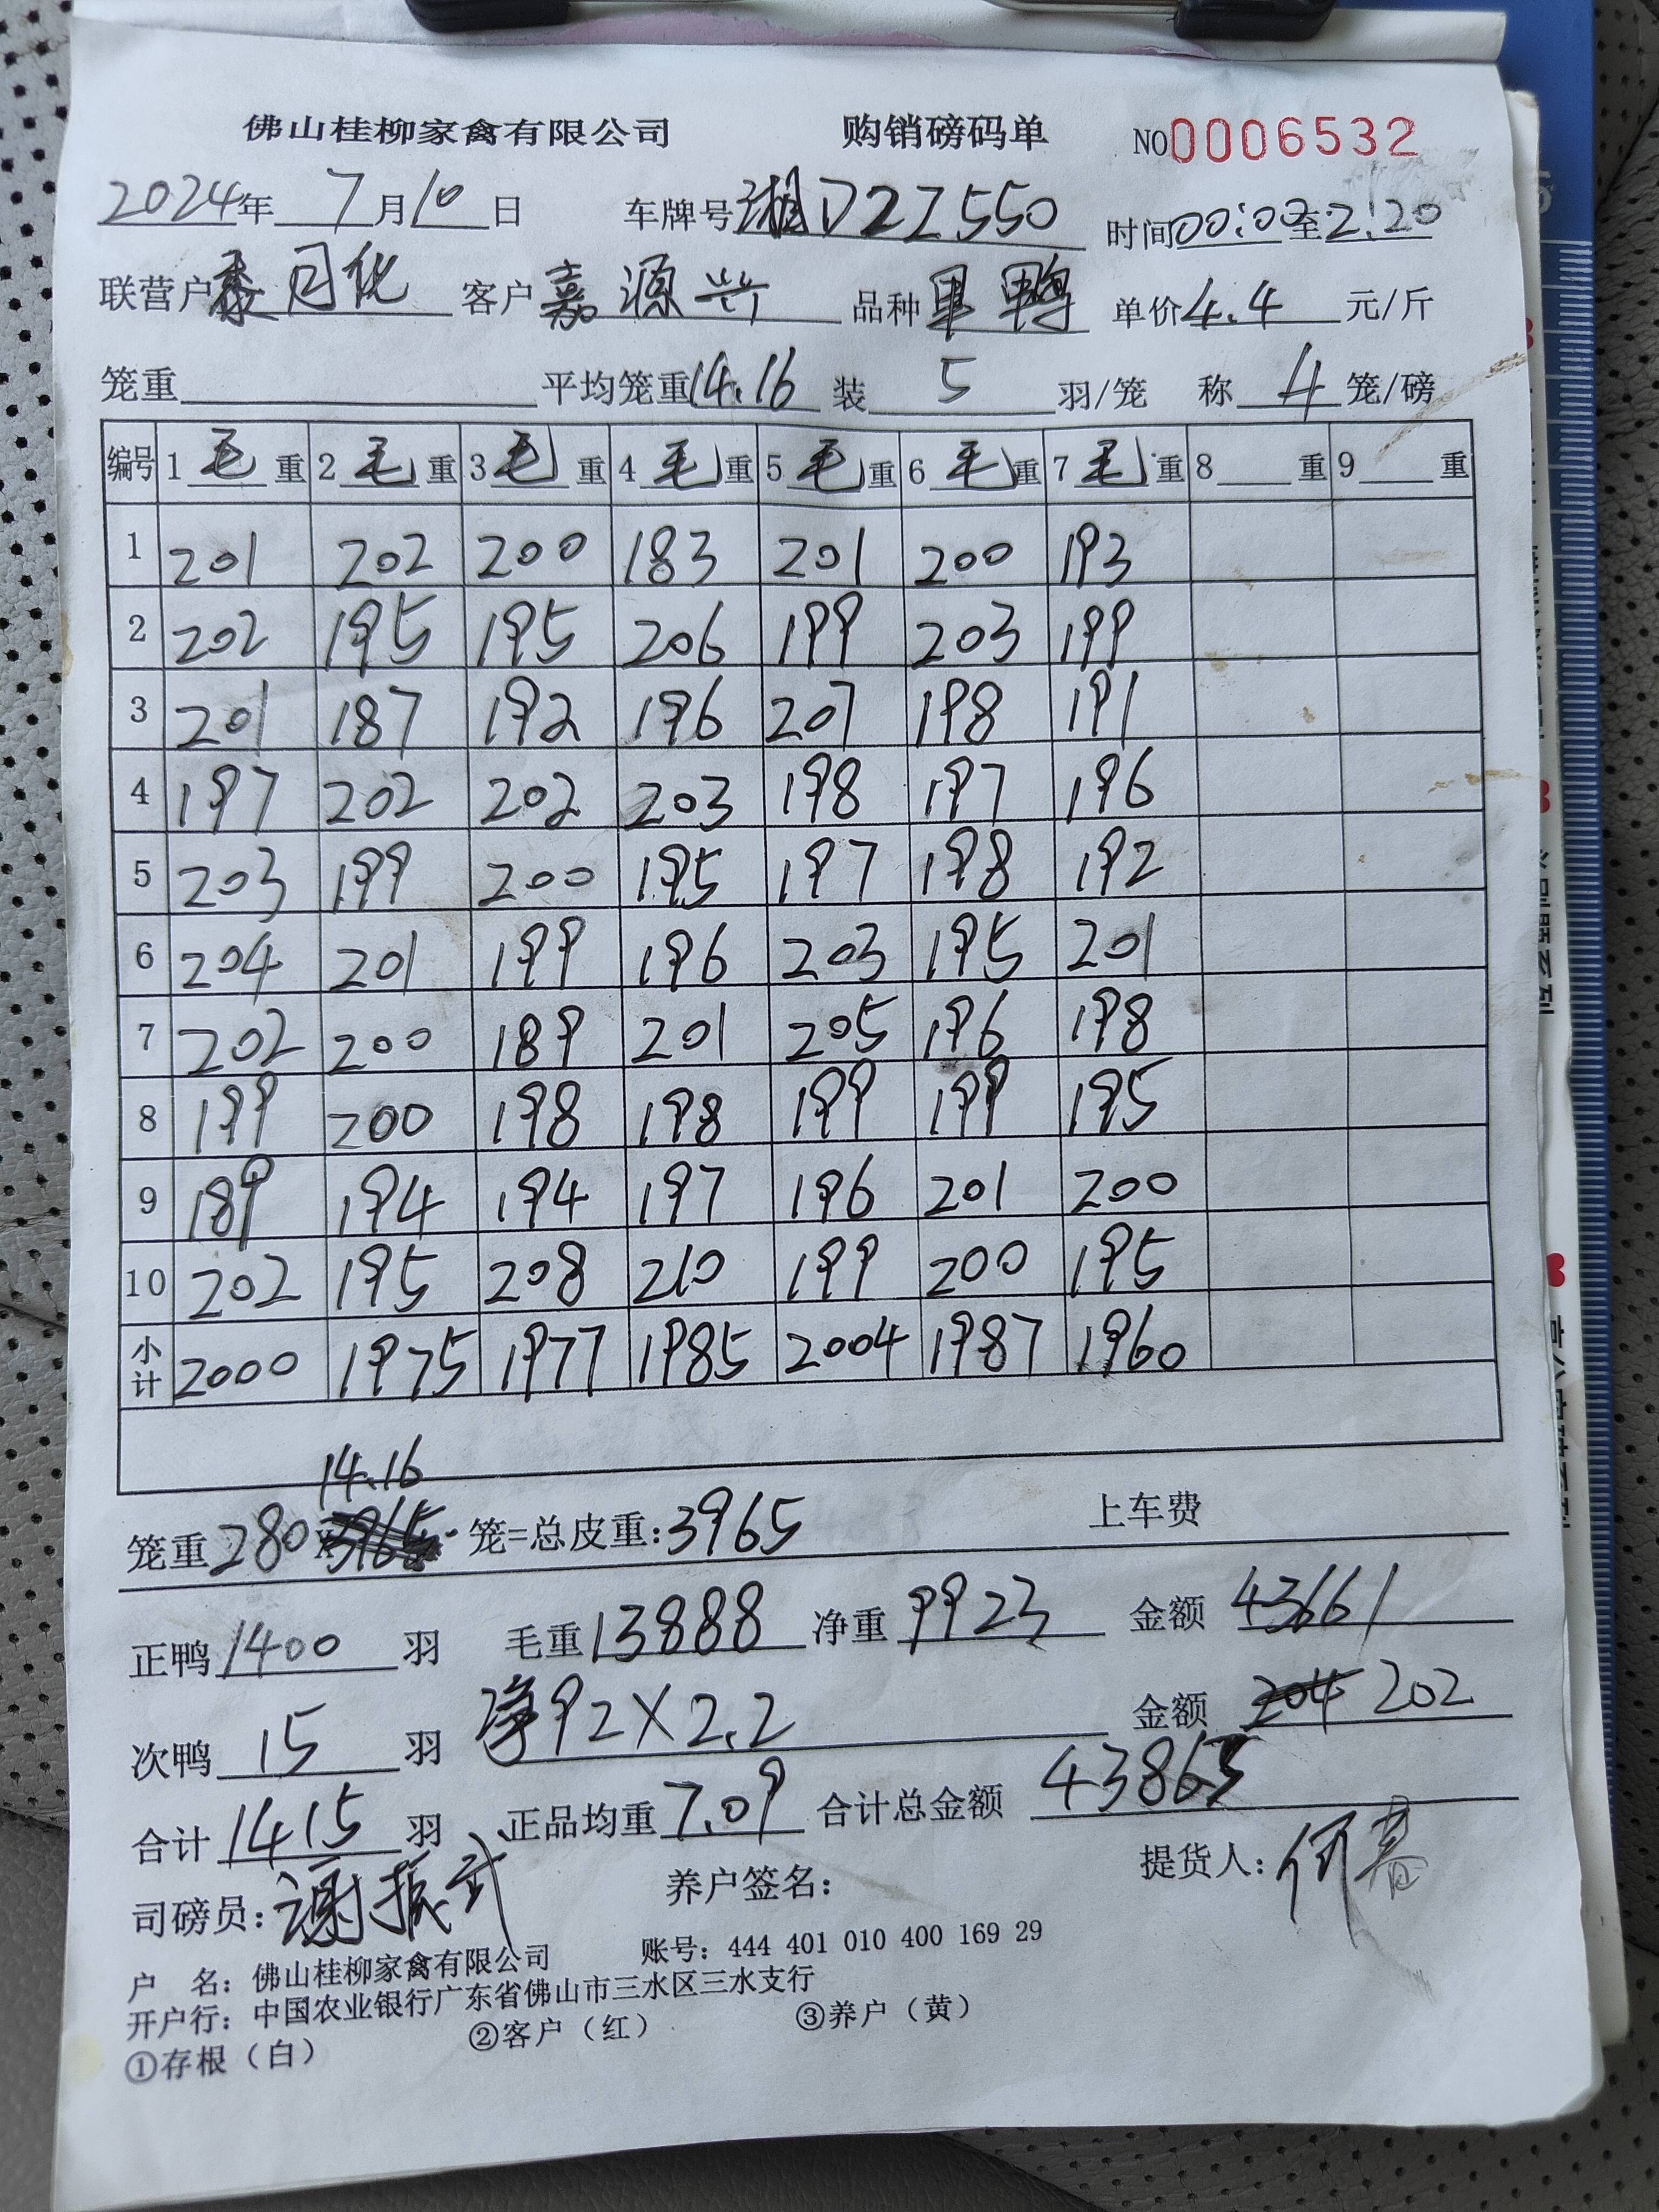 佛山桂柳家禽有限公司 购销磅码单 NO0006532
2024年 7月10日 车牌号湘D2Z550 时间00:00至2:20
联营户 客户嘉源兴 品种 鸭 单价4.4元/斤
笼重 平均笼重14.16 装5羽/笼 称4笼/磅
编号 1毛重 2毛重 3毛重 4毛重 5毛重 6毛重 7毛重 8 重 9 重
1 201 202 200 183 201 200 193
2 202 195 195 206 199 203 199
3 201 187 192 196 207 198 191
4 197 202 202 203 198 197 196
5 203 199 200 195 197 198 192
6 204 201 199 196 203 195 201
7 202 200 189 201 205 196 198
8 199 200 198 198 199 199 195
9 189 194 194 197 196 201 200
10 202 195 208 210 199 200 195
小计 2000 1975 1977 1985 2004 1987 1960
14.16
笼重280 x 笼=总皮重:3965 上车费
正鸭1400羽 毛重13888 净重9923 金额43661
次鸭15羽 净92X2.2 金额204 202
合计1415羽 正品均重7.09 合计总金额43863
司磅员:谢振武 养户签名: 提货人:何春
户 名:佛山桂柳家禽有限公司 账号:444 401 010 400 169 29
开户行:中国农业银行广东省佛山市三水区三水支行
①存根(白) ②客户(红) ③养户(黄)